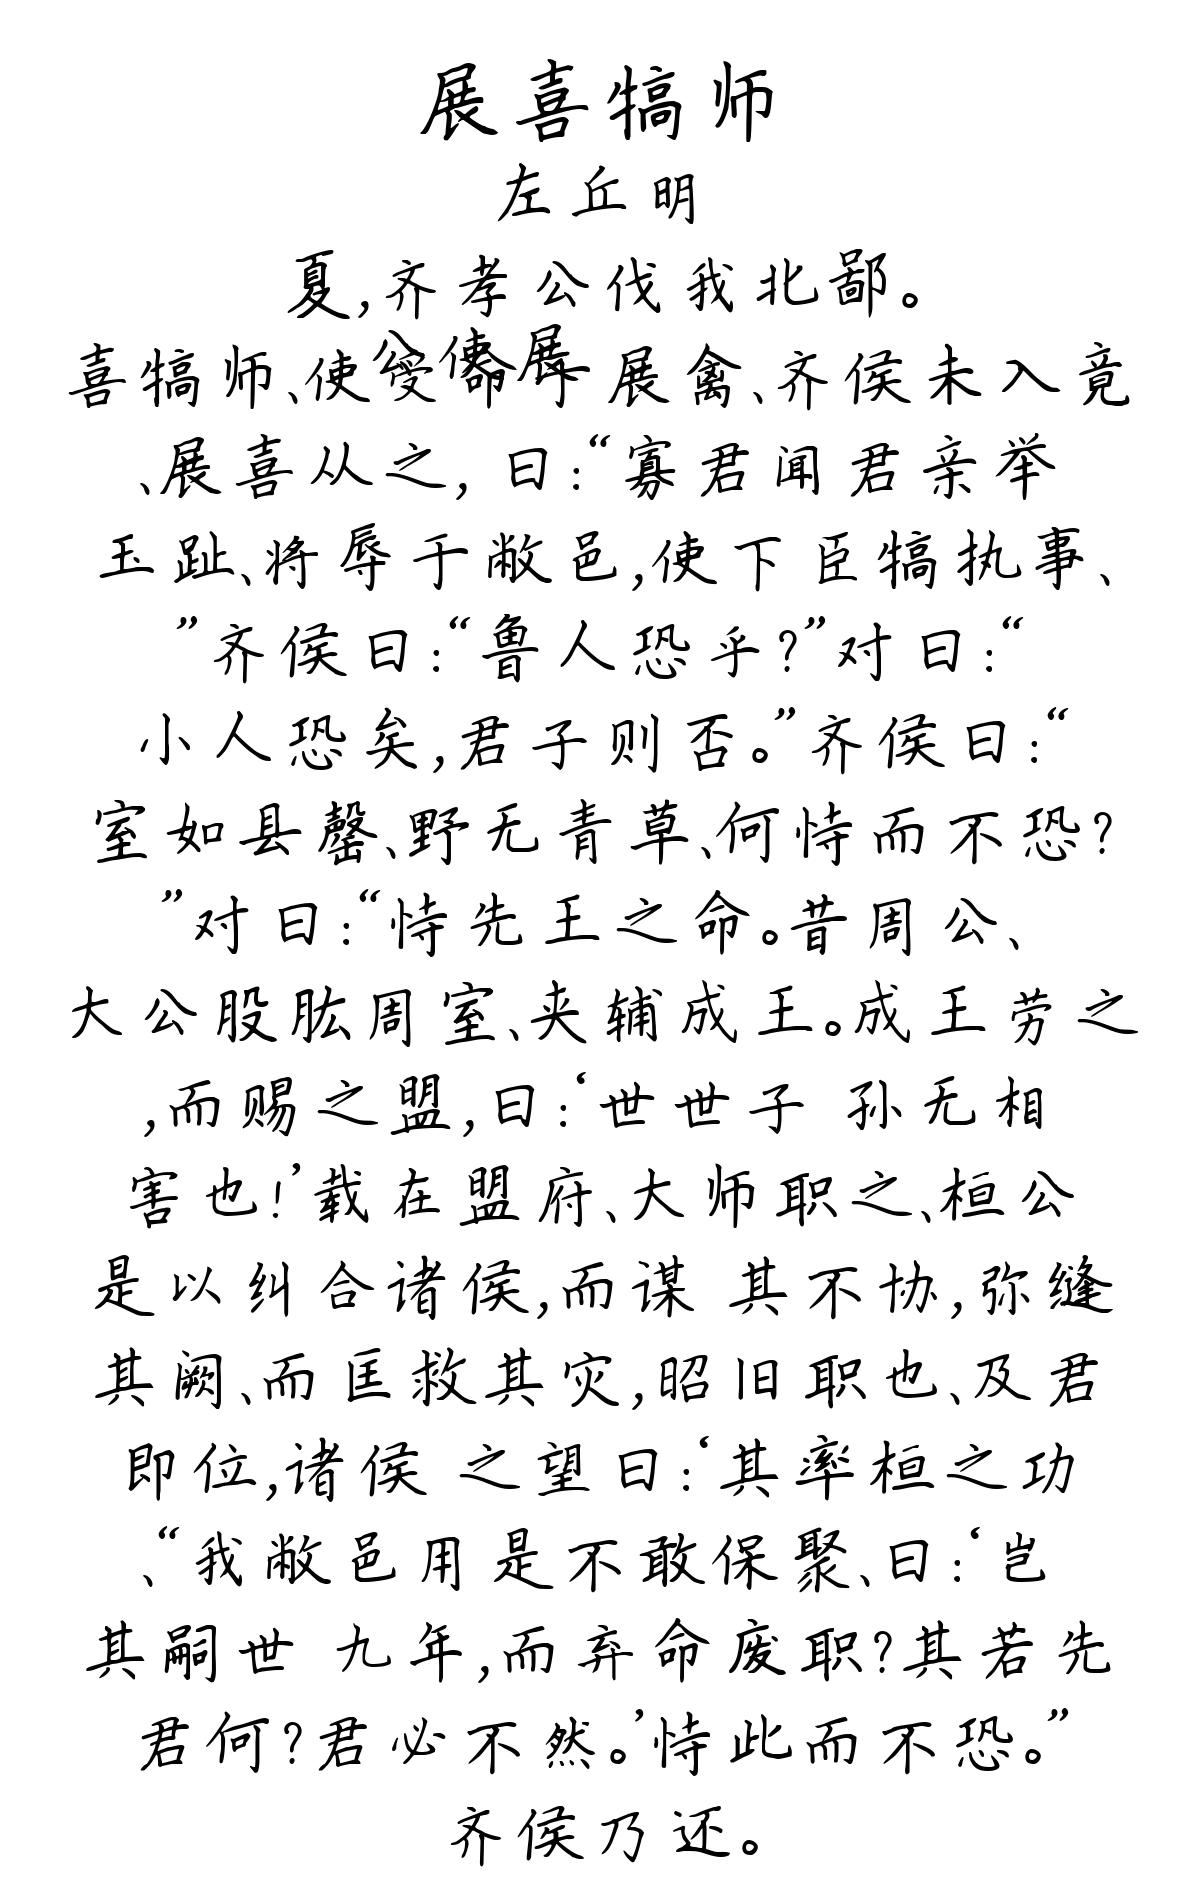 展喜犒师
左丘明
夏,齐孝公伐我北鄙。
公使展
喜犒师、使受命于展禽、齐侯未入竟
、展喜从之, 曰:“寡君闻君亲举
玉趾、将辱于敝邑,使下臣犒执事、
”齐侯曰:“鲁人恐乎?”对曰:“
小人恐矣,君子则否。”齐侯曰:“
室如县罄、野无青草、何恃而不恐?
”对曰:“恃先王之命。昔周公、
大公股肱周室、夹辅成王。成王劳之
,而赐之盟,曰:‘世世子 孙无相
害也!’载在盟府、大师职之、桓公
是以纠合诸侯,而谋 其不协,弥缝
其阙、而匡救其灾,昭旧职也、及君
即位,诸侯 之望曰:‘其率桓之功
、“我敝邑用是不敢保聚、曰:‘岂
其嗣世 九年,而弃命废职?其若先
君何?君必不然。’恃此而不恐。”
齐侯乃还。